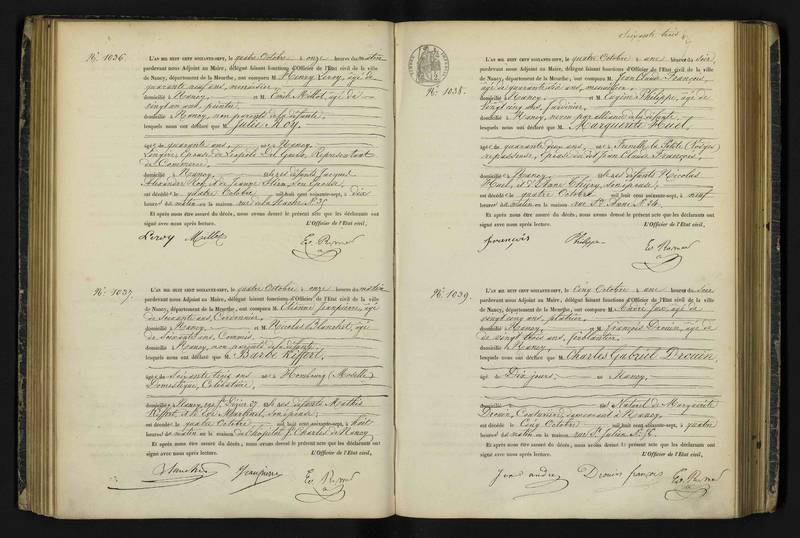 N° 1036
L'AN MIL HUIT CENT SOIXANTE-SEPT, le quatre Octobre à onze heures du matin
pardevant nous Adjoint au Maire, délégué faisant fonctions d'Officier de l'Etat civil de la ville
de Nancy, département de la Meurthe, ont comparu M. Henry Leroy, âgé de
quarante neuf ans, menuisier
domicilié à Nancy et M. Emile Millot, âgé de
vingt un ans, peintre
domicilié à Nancy, non parents de la défunte
lesquels nous ont déclaré que M. Julie Roy
âgé de quarante ans, né à Nancy
Lingère, Epouse de Représentant
de Commerce
domicilié à Nancy de défunts Jacques
Alexandre Roy, et de Jeanne
est décédé le quatre Octobre mil huit cent soixante-sept, à dix
heures du matin en la maison rue de la N° 35
Et après nous être assuré du décès, nous avons dressé le présent acte que les déclarants ont
signé avec nous après lecture. L'Officier de l'Etat civil,
Leroy Millot
N° 1037
L'AN MIL HUIT CENT SOIXANTE-SEPT, le quatre Octobre à onze heures du matin
pardevant nous Adjoint au Maire, délégué faisant fonctions d'Officier de l'Etat civil de la ville
de Nancy, département de la Meurthe, ont comparu M. Etienne Jeanpierre, âgé
de soixante ans, Cordonnier
domicilié à Nancy et M. Nicolas Blanchet, âgé
de soixante ans, Commis
domicilié à Nancy, non parents de la défunte
lesquels nous ont déclaré que M. Barbe Kiffert
âgé de soixante trois ans né à Hombourg (Moselle)
Domestique, Célibataire
domicilié à Nancy, rue St. Dizier 27 de défunts Mathis
Kiffert, et de son épouse
est décédé le quatre Octobre mil huit cent soixante-sept, à huit
heures du matin en la maison de l'hôpital St. Charles de Nancy
Et après nous être assuré du décès, nous avons dressé le présent acte que les déclarants ont
signé avec nous après lecture. L'Officier de l'Etat civil,
Jeanpierre
Soixante trois
N° 1038
L'AN MIL HUIT CENT SOIXANTE-SEPT, le quatre Octobre à une heure du soir
pardevant nous Adjoint au Maire, délégué faisant fonctions d'Officier de l'Etat civil de la ville
de Nancy, département de la Meurthe, ont comparu M. Jean Claude François,
âgé de quarante dix ans, menuisier
domicilié à Nancy et M. Eugène Philippe, âgé de
vingt cinq ans, Jardinier
domicilié à Nancy, neveu par alliance de la défunte
lesquels nous ont déclaré que M. Marguerite Huel
âgé de quarante cinq ans, né à la Petite (Vosges)
repasseuse, Epouse du dit Jean Claude François,
domicilié à Nancy de défunts Nicolas
Huel, et d'Anne Thiery, son épouse
est décédé le quatre Octobre mil huit cent soixante-sept, à neuf
heures du matin en la maison rue Ste. Anne N° 24
Et après nous être assuré du décès, nous avons dressé le présent acte que les déclarants ont
signé avec nous après lecture. L'Officier de l'Etat civil,
françois Philippe
N° 1039
L'AN MIL HUIT CENT SOIXANTE-SEPT, le Cinq Octobre à une heure du soir
pardevant nous Adjoint au Maire, délégué faisant fonctions d'Officier de l'Etat civil de la ville
de Nancy, département de la Meurthe, ont comparu M. âgé de
vingt cinq ans, plâtrier
domicilié à Nancy et M. François Drouin, âgé de
de vingt trois ans, ferblantier
domicilié à Nancy
lesquels nous ont déclaré que M. Charles Gabriel Drouin
âgé de Dix jours né à Nancy
fils Naturel de Marguerite
Drouin, Couturière, demeurant à Nancy
est décédé le Cinq Octobre mil huit cent soixante-sept, à quatre
heures du matin en la maison rue St. Julien N° 15
Et après nous être assuré du décès, nous avons dressé le présent acte que les déclarants ont
signé avec nous après lecture. L'Officier de l'Etat civil,
Drouin françois